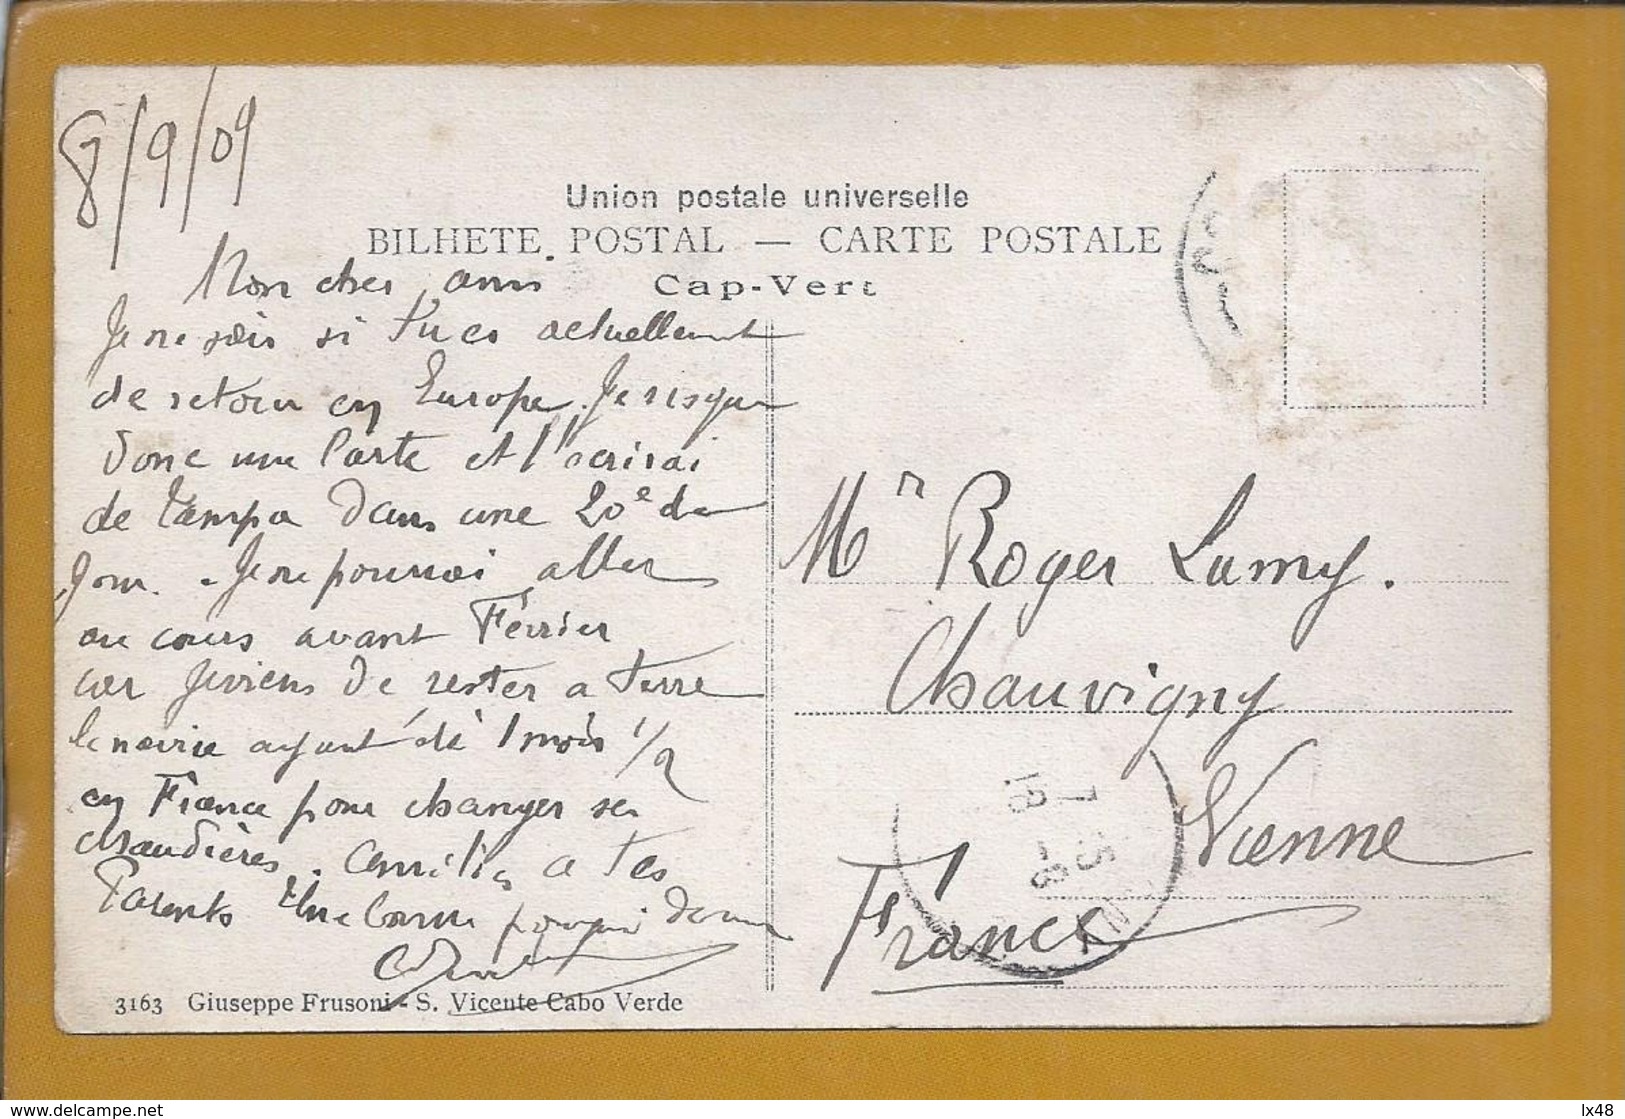 8/9/09
Union postale universelle
BILHETE POSTAL — CARTE POSTALE
Cap-Vert
Mon cher ami
Je ne sais si tu es actuellement
de retour en Europe. Je risque
donc une Carte et t'ecrirai
de Tampa dans une 20e de
jour. Je ne pourrai aller
au cours avant Février
car je viens de rester a terre
le navire ayant été 1 mois 1/2
en France pour changer ses
chaudières. amitiés a tes
Parents Une bonne poignée
Mr Roger Lamy.
Chauvigny
Vienne
France
3163 Giuseppe Frusoni - S. Vicente Cabo Verde
lx48
delcampe.net